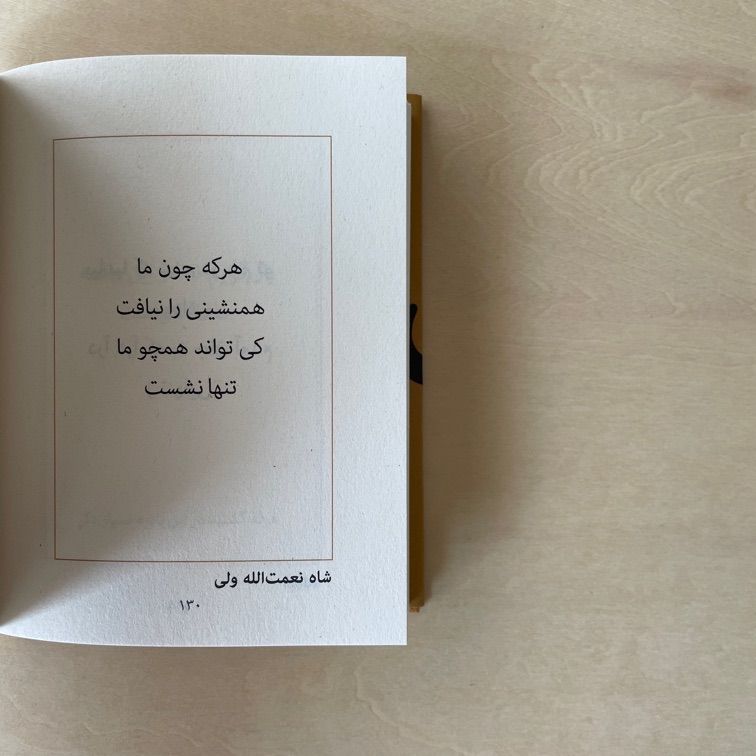 هرکه چون ما
همنشینی را نیافت
کی تواند همچو ما
تنها نشست
شاه نعمت‌الله ولی
۱۳۰